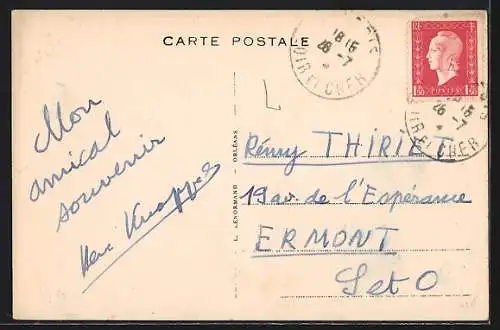 CARTE POSTALE
18 15
26 -7
LOIR ET CHER
POSTES
18 15
26 -7
LOIR ET CHER
Mon
amical
souvenir
L. LENORMAND - ORLÉANS
Rémy THIRIET
19 av. de l'Espérance
ERMONT
S et O